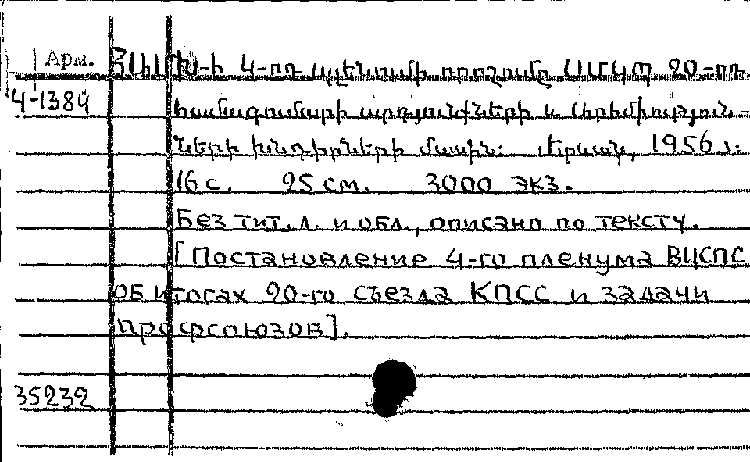 Арм. ՀԱՄԽ-ի 4-րդ պլենումի որոշումը ՍՄԿՊ 20-րդ
4-1389 համագումարի արդյունքների և
ների խնդիրների մասին: Երևան, 1956 թ.
16 с. 25 см. 3000 экз.
Без тит. л. и обл., описано по тексту.
[Постановление 4-го пленума ВЦСПС
об итогах 20-го съезда КПСС и задачи
профсоюзов].
35232